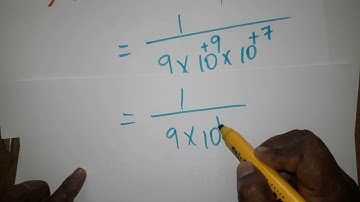 = 1 / 9 × 10⁺⁹ × 10⁺⁷
= 1 / 9 × 10¹